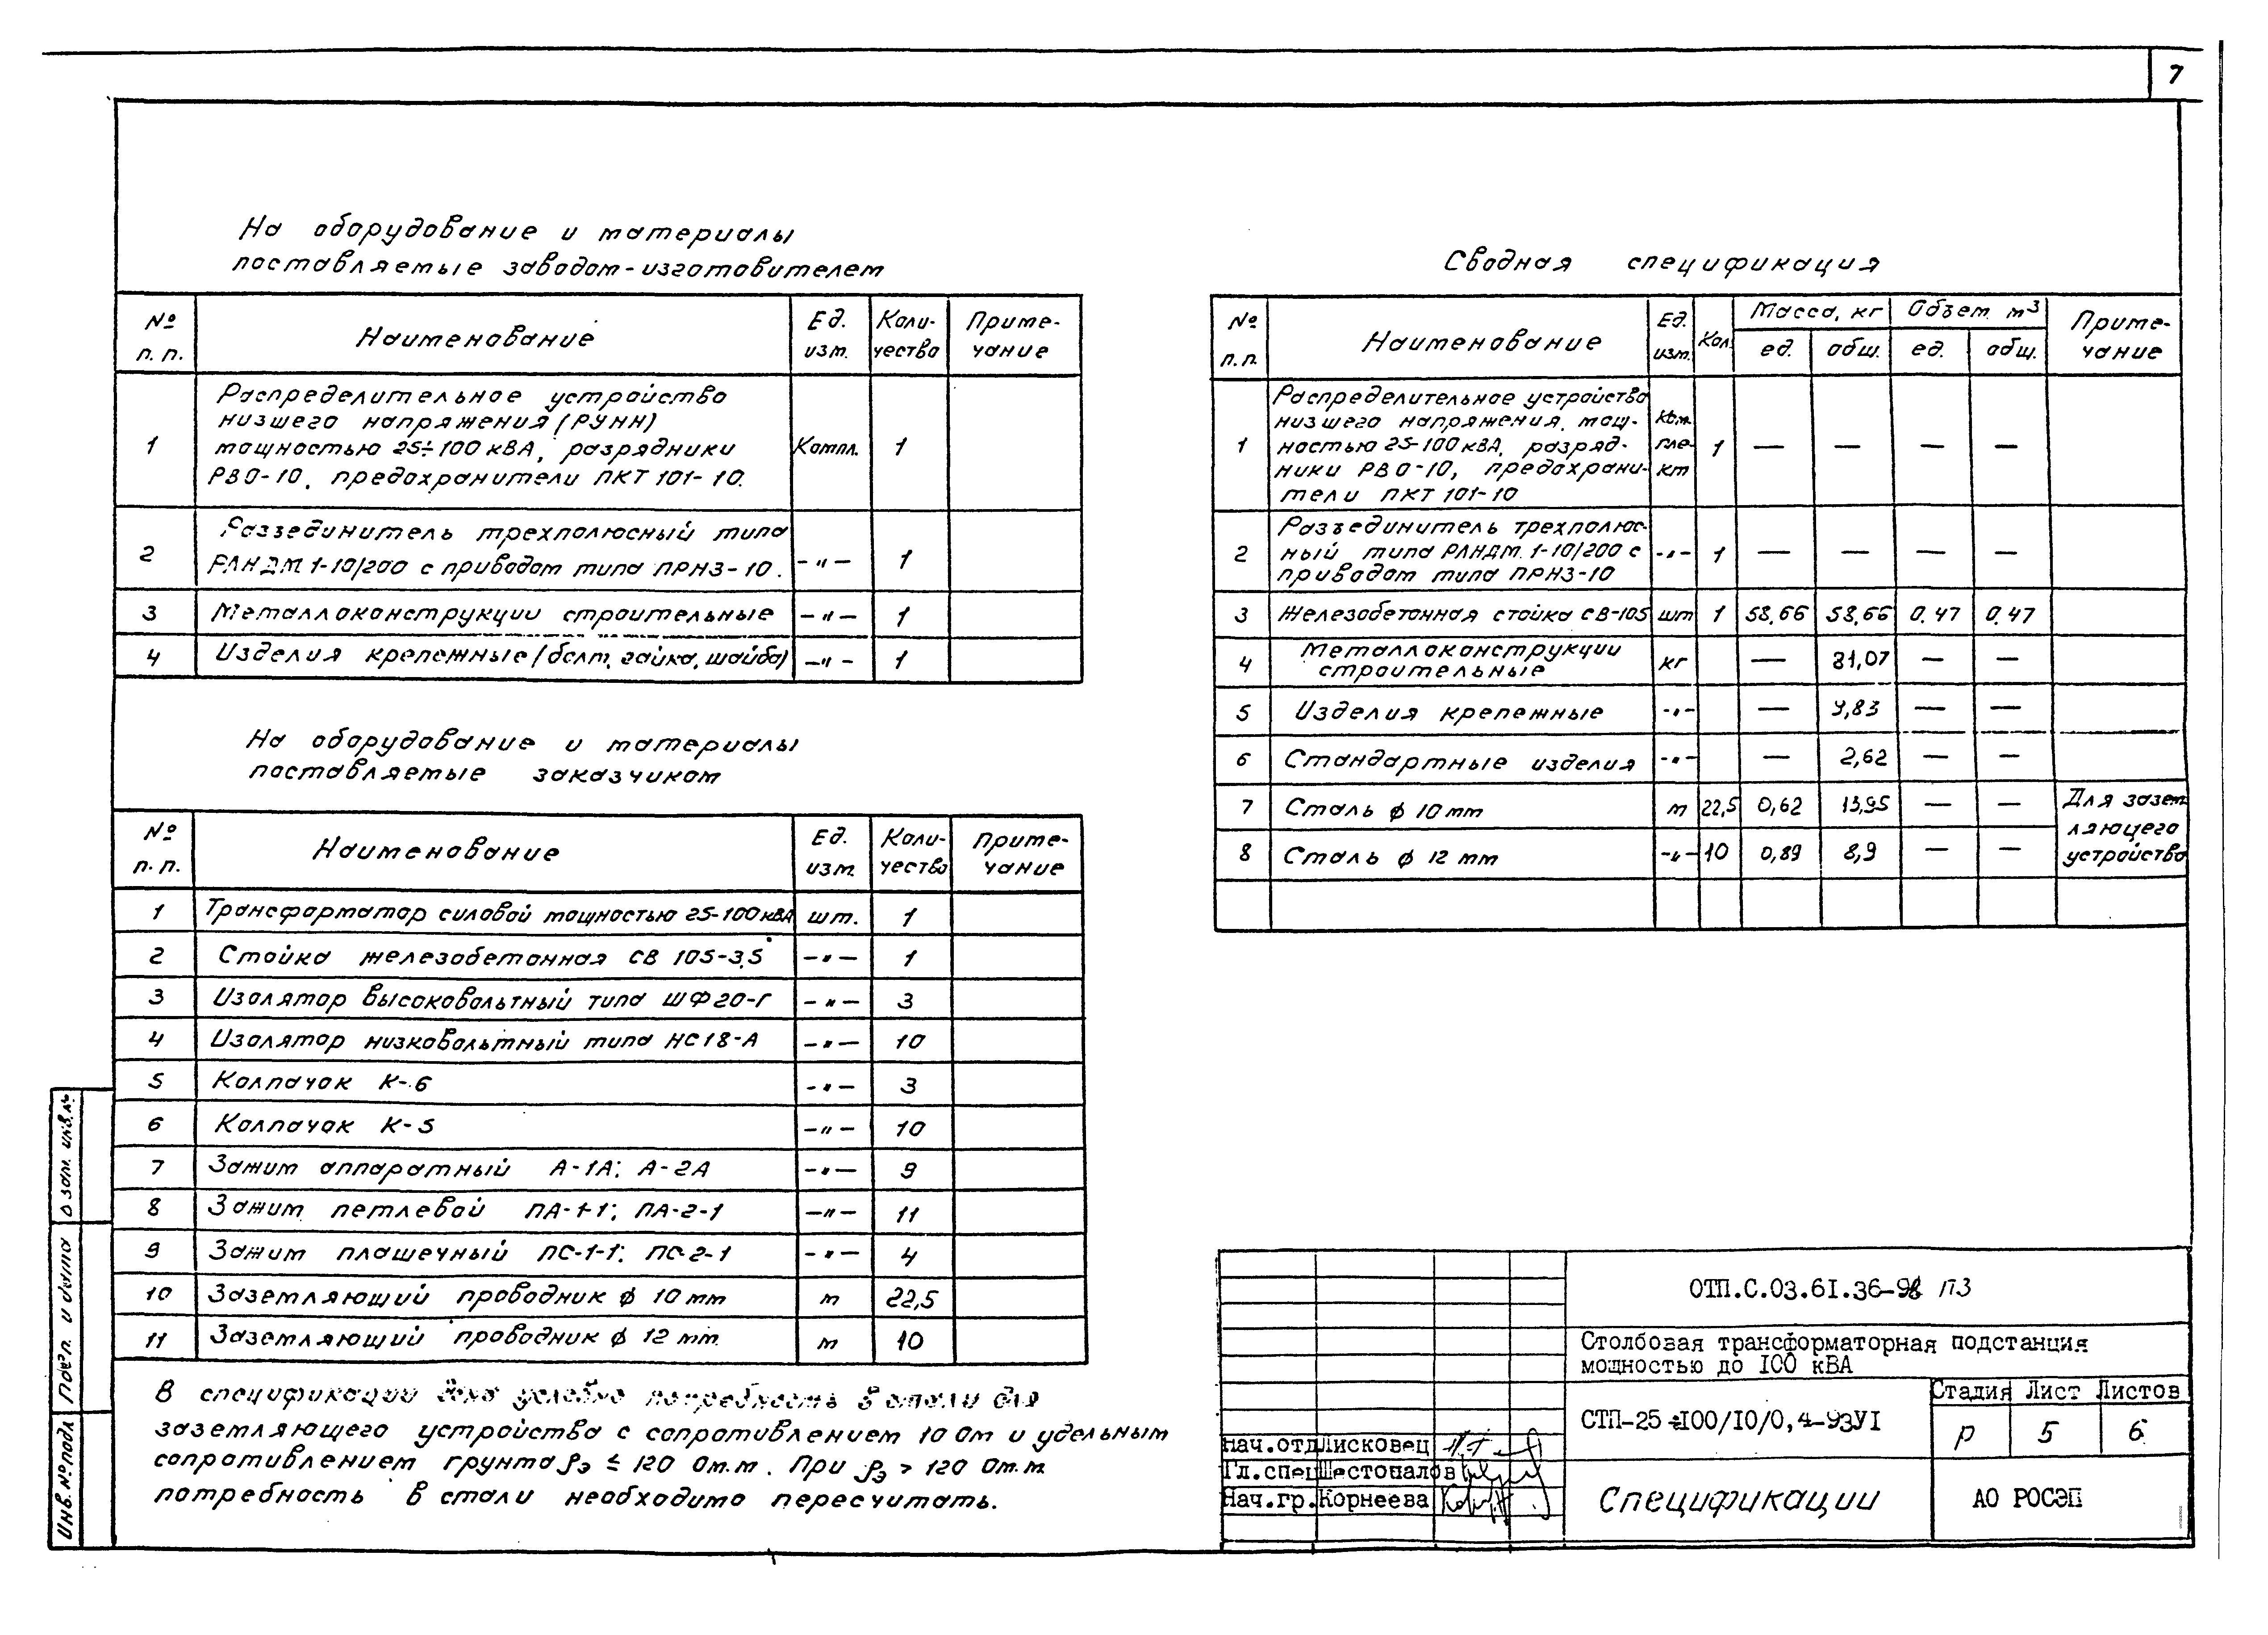 7
На оборудование и материалы
поставляемые заводом-изготовителем
№ п.п. Наименование Ед. изм. Количество Примечание
1 Распределительное устройство
низшего напряжения (РУНН)
мощностью 25÷100 кВА, разрядники Компл. 1
РВО-10, предохранители ПКТ 101-10.
2 Разъединитель трехполюсный типа
РЛНДМ 1-10/200 с приводом типа ПРНЗ-10. -"- 1
3 Металлоконструкции строительные -"- 1
4 Изделия крепежные (болт, гайка, шайба) -"- 1
На оборудование и материалы
поставляемые заказчиком
№ п.п. Наименование Ед. изм. Количество Примечание
1 Трансформатор силовой мощностью 25-100 кВА шт. 1
2 Стойка железобетонная СВ 105-3,5 -"- 1
3 Изолятор высоковольтный типа ШФ20-Г -"- 3
4 Изолятор низковольтный типа НС18-А -"- 10
5 Колпачок К-6 -"- 3
6 Колпачок К-5 -"- 10
7 Зажим аппаратный А-1А; А-2А -"- 9
8 Зажим петлевой ПА-1-1; ПА-2-1 -"- 11
9 Зажим плашечный ПС-1-1; ПС-2-1 -"- 4
10 Заземляющий проводник ϕ 10 мм м 22,5
11 Заземляющий проводник ϕ 12 мм. м 10
В спецификации дана условно потребность в стали для
заземляющего устройства с сопротивлением 10 Ом и удельным
сопротивлением грунта ρэ ≤ 120 Ом.м. При ρэ > 120 Ом.м.
потребность в стали необходимо пересчитать.
Сводная спецификация
№ п.п. Наименование Ед. изм. Кол. Масса, кг ед. общ. Объем м³ ед. общ. Примечание
1 Распределительное устройство
низшего напряжения, мощ-
ностью 25-100 кВА, разряд- комплект 1 — — — —
ники РВО-10, предохрани-
тели ПКТ 101-10
2 Разъединитель трехполюс-
ный типа РЛНДМ 1-10/200 с -"- 1 — — — —
приводом типа ПРНЗ-10
3 Железобетонная стойка СВ-105 шт 1 58,66 58,66 0,47 0,47
4 Металлоконструкции
строительные кг — 81,07 — —
5 Изделия крепежные -"- — 9,83 — —
6 Стандартные изделия -"- — 2,62 — —
7 Сталь ϕ 10 мм м 22,5 0,62 13,95 — — Для зазем-
ляющего
8 Сталь ϕ 12 мм -"- 10 0,89 8,9 — — устройства
ОТП.С.03.61.36- ПЗ
Столбовая трансформаторная подстанция
мощностью до 100 кВА
СТП-25÷100/10/0,4-93У1
Стадия Лист Листов
Р 5 6
Нач.отд Лисковец
Гл.спец Шестопалов
Нач.гр. Корнеева
Спецификации
АО РОСЭП
Взам. инв.№
Подп. и дата
Инв.№подл